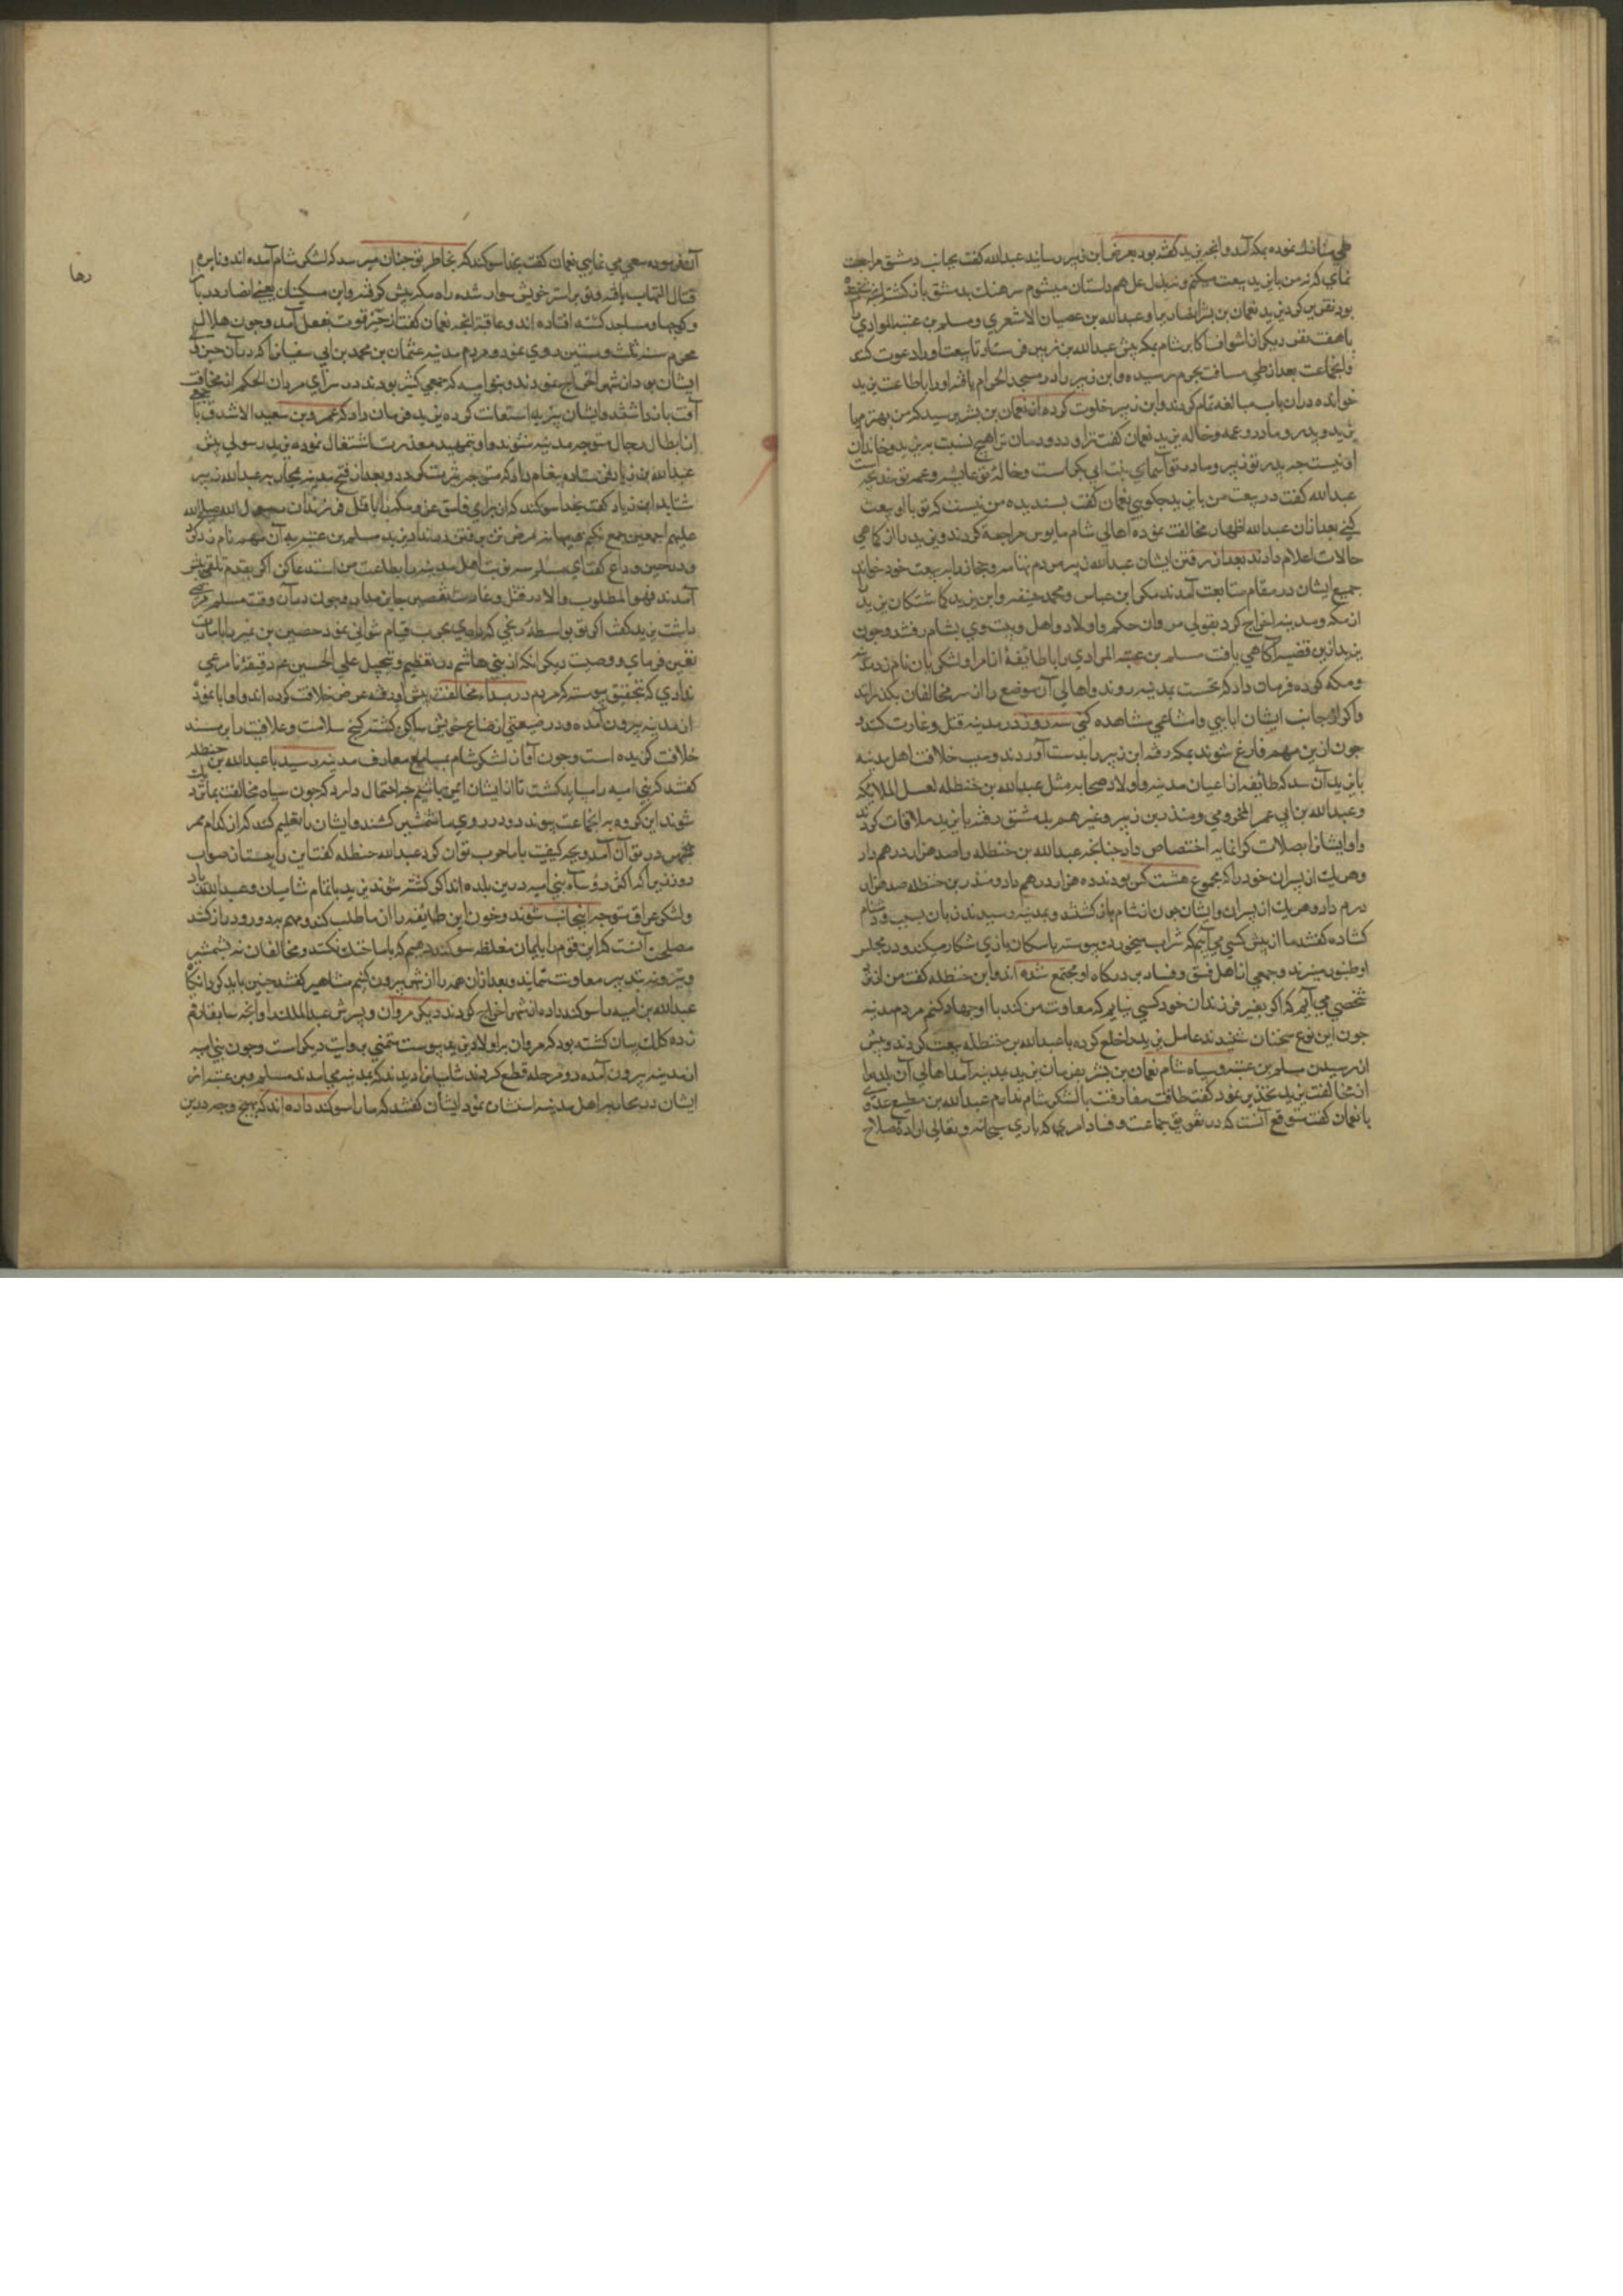 طی منازل نموده بمکه آمد و آنچه یزید گفته بود بعرض ابن زبیر رسانید عبدالله گفت بجانب دمشق مراجعت
نمای که نه من با یزید بیعت میکنم و نه بذل علی هم داستان میشوم سرهنك بدمشق بازگشته آنچه شنوده
بود تقریر کرد یزید نعمان بن بشر انصاری را و عبدالله بن عصیان الاشعری و مسلم بن عتبه المرادی را
با هفت نفر دیگر از اشراف اکابر شام بمکه پیش عبدالله بن زبیر فرستاد تا ببیعت او را دعوت کنند
و آنجماعت بعد از طی مسافت بحرم رسیده و ابن زبیر را در مسجد الحرام یافته او را باطاعت یزید
خوانده در آن باب مبالغه تمام کردند و ابن زبیر خلوت کرده از نعمان بن بشر پرسید که من بهترم یا
یزید و پدر و مادر و عمه و خاله یزید نعمان گفت ترا و دودمان ترا هیچ نسبت به یزید و خاندان
او نیست چه پدر تو زبیر و مادر تو اسمای بنت ابی بکر است و خاله تو عایشه و عمه تو خدیجه
عبدالله گفت در بیعت من با یزید چگویی نعمان گفت پسندیده من نیست که تو با او بیعت
کنی بعد از آن عبدالله اظهار مخالفت نموده اهالی شام مایوس مراجعة کردند و یزید را از کماهی
حالات اعلام دادند بعد از رفتن ایشان عبدالله زبیر مردم تهامه و حجاز را به بیعت خود خواند
جمیع ایشان در مقام متابعت آمدند مگر ابن عباس و محمد حنیفه و ابن زبیر گماشتگان یزید را
از مکه و مدینه اخراج کرد بقولی مروان حکم و اولاد و اهل و بیت وی بشام رفتند و چون
یزید ازین قضیه آگاهی یافت مسلم بن عتبه المرادی را با طائفهٔ از امرا و لشکریان نامزد مدینه
و مکه کرده فرمان داد که نخست بمدینه روند و اهالی آن موضع را از سر مخالفان بگذرانند
و اگر از جانب ایشان ابایی و امتناعی مشاهده کنی سه روز در مدینه قتل و غارت کنند و
چون ازین مهم فارغ شوند بمکه رفته ابن زبیر را بدست آوردند و سبب خلافت اهل مدینه
با یزید آن شد که طائفه از اعیان مدینه و اولاد صحابه مثل عبدالله بن حنظله لغسل الملایکه
و عبدالله بن ابی عمر المخزومی و منذر بن زبیر و غیرهم بدمشق رفته با یزید ملاقات کردند
و او ایشانرا بصلات گرانمایه اختصاص داد چنانچه عبدالله بن حنظله را صد هزار درهم داد
و هر یک از پسران خود را که مجموع هشت کس بودند ده هزار درهم داد و منذر بن حنظله صد هزار
درم داد و هر یك از پسران و ایشان چون از شام بازگشتند و بمدینه رسیدند زبان بسب و دشنام
گشاده گفتند ما از پیش کسی می آییم که شراب میخورد و پیوسته با سکان بازی شکار میکند و در مجلس
او طنبور میزند و جمعی از اهل فسق و فساد بر درگاه او مجتمع شده اند و ابن حنظله گفت من از نزد
شخصی می آیم که اگر بغیر فرزندان خود کسی نیابم که معاونت من کند با او جهاد کنم مردم مدینه
چون این نوع سخنان شنیدند عامل یزید را خلع کرده با عبدالله بن حنظله بیعت کردند و پیش
از رسیدن مسلم بن عتبه و سپاه شام نعمان بن بشر بفرمان یزید بمدینه آمد اهالی آن بلده را
از مخالفت یزید تحذیر نمود گفت طاقت مقاومت با لشکر شام ندارم عبدالله بن مطیع عدوی
با نعمان گفت متوقع آنست که در تفریق جماعت و فساد امری که باری سبحانه و تعالی اراده صلاح
آن فرموده سعی می نمایی نعمان گفت بخدا سوگند که بخاطر تو چنان میرسد که لشکر شام آمده اند و نایره
قتال التهاب یافته و تو بر استر خویش سوار شده راه مکه پیش گرفته و این مسکینان یعنی انصار در بازار
و کوچها و مساجد کشته افتاده اند و عاقبة آنچه نعمان گفت از حیز قوت بفعل آمد و چون هلال
محرم سنه ثلث و ستین روی نمود مردم مدینه عثمان بن محمد بن ابی سفیان را که در آن حین والی
ایشان بود از شهر اخراج نمودند و بنو امیه که جمعی کثیر بودند در سرای مروان الحکم از مخافت
آفت باز داشتند و ایشان به یزید استعانت کرده یزید فرمان داد که عمرو بن سعید الاشدق با جمعی
از ابطال رجال متوجه مدینه شوند و او بتمهید معذرت اشتغال نموده یزید رسولی پیش
عبدالله بن زیاد فرستاده پیغام داد که متوجه یثرب گردد و بعد از فتح مدینه بمحاربه عبدالله زبیر
شتابد ابن زیاد گفت بخدا سوگند که از برای فاسق غزو مکه را با قتل فرزندان رسول الله صلی الله
علیهم اجمعین جمع نکنم
در حین وداع گفت ای مسلم
آمدند فهو المطلوب و الا در قتل و غارت تقصیر جایز مدار و چون در آن وقت مسلم مرضی
داشت یزید گفت اگر تو بواسطهٔ رنجی که داری بموجب قیام نتوانی نمود حصین بن نمیر را بامارت
تعیین فرمای و وصیت دیگر آنکه از بنی هاشم در تعظیم و تبجیل علی الحسین هیچ دقیقهٔ نامرعی
نداری که بتحقیق پیوسته که مردم در مبداء مخالفت پیش او رفته عرض خلافت کرده اند و او ابا نموده
از مدینه بیرون آمده و در ضیعتی از ضیاع خویش ساکن گشته کنج سلامت و عافیت را بر مسند
خلافت گزیده است و چون آوازه لشکر شام بمسامع معارف مدینه رسید با عبدالله بن حنظله
گفتند که بنی امیه را بباید کشت تا از ایشان ایمن باشیم چه احتمال دارد که چون سپاه مخالفت نمایان
شوند این گروه به آنجماعت پیوندند و در روی ما شمشیر کشند و ایشان را تعلیم کنند که از کدام ممر
بر سر ما توان آمد و بچه کیفیت با ما حرب توان کرد عبدالله حنظله گفت این رای مستلزم صواب
دور نیست زیرا که اکثر رؤساء بنی امیه درین بلده اند اگر کشته شوند یزید با تمام شامیان و عبیدالله زیاد
و لشکر عراق متوجه اینجانب شوند و خون این طایفه را از ما طلب کنند و مهم بدور و دراز کشد
مصلحت آنست که این قوم را بایمان مغلظه سوگند دهیم که با ما خدر نکنند و مخالفان نه بشمشیر
و تیر و نه بتدبیر معاونت ننمایند و بعد از آن همه را از شهر بیرون کنیم مشاهیر گفتند چنین باید کرد آنگاه
عبدالله بنی امیه را سوگند داده از شهر اخراج کردند دیگر مروان و پسرش عبدالملك را و آنچه سابقا رقم
زده کلك بیان گشته بود که مروان با اولاد به یزید پیوست مبتنی بروایت دیگر است و چون بنی امیه
از مدینه بیرون آمده دو مرحله قطع کردند شامیانرا دیدند که بمدینه می آمدند مسلم بن عتبه از
ایشان در محاربه اهل مدینه استشاره نمود ایشان گفتند که ما را سوگند داده اند که بهیچ وجه درین
رها